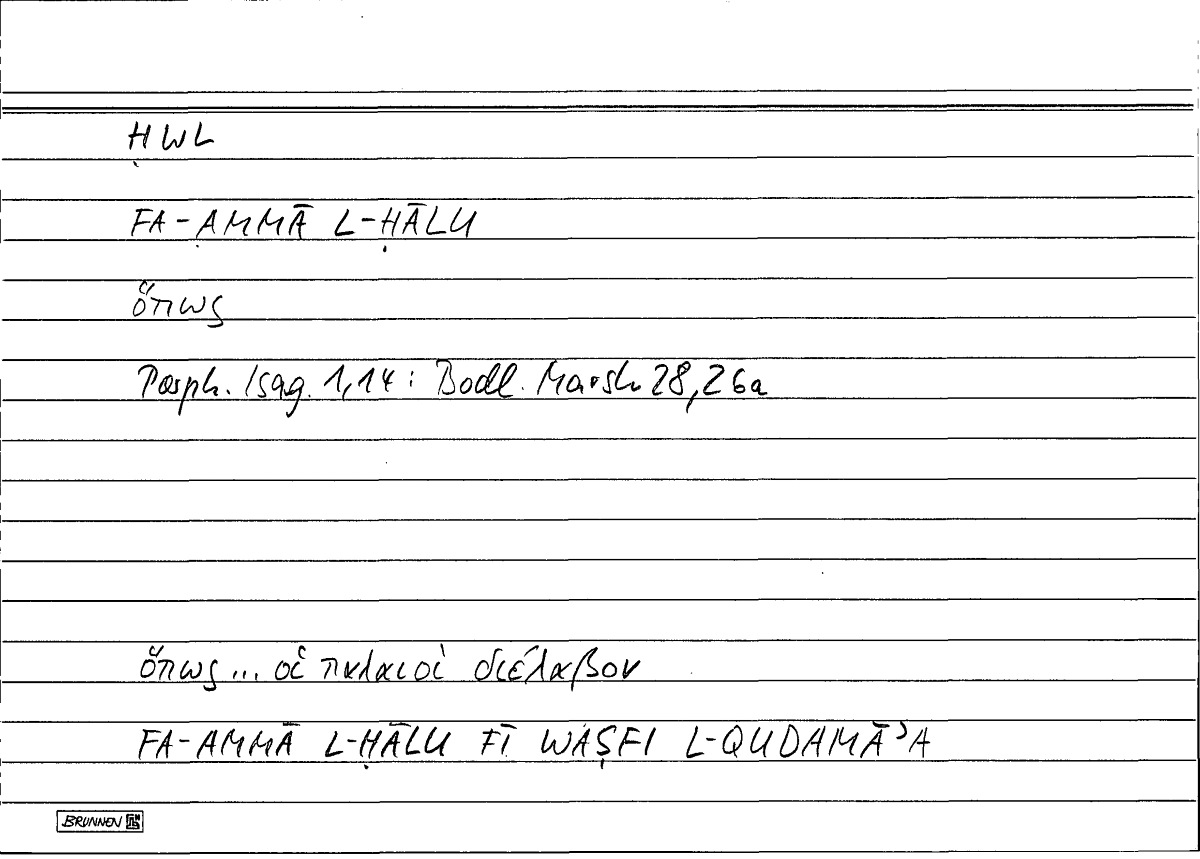 ḤWL
FA-AMMĀ L-ḤĀLU
ὅπως
Porph. Isag. 1,14: Bodl. Marsh 28,26a
ὅπως ... οἱ παλαιοὶ διέλαβον
FA-AMMĀ L-ḤĀLU FĪ WAṢFI L-QUDAMĀʾA
BRUNNEN